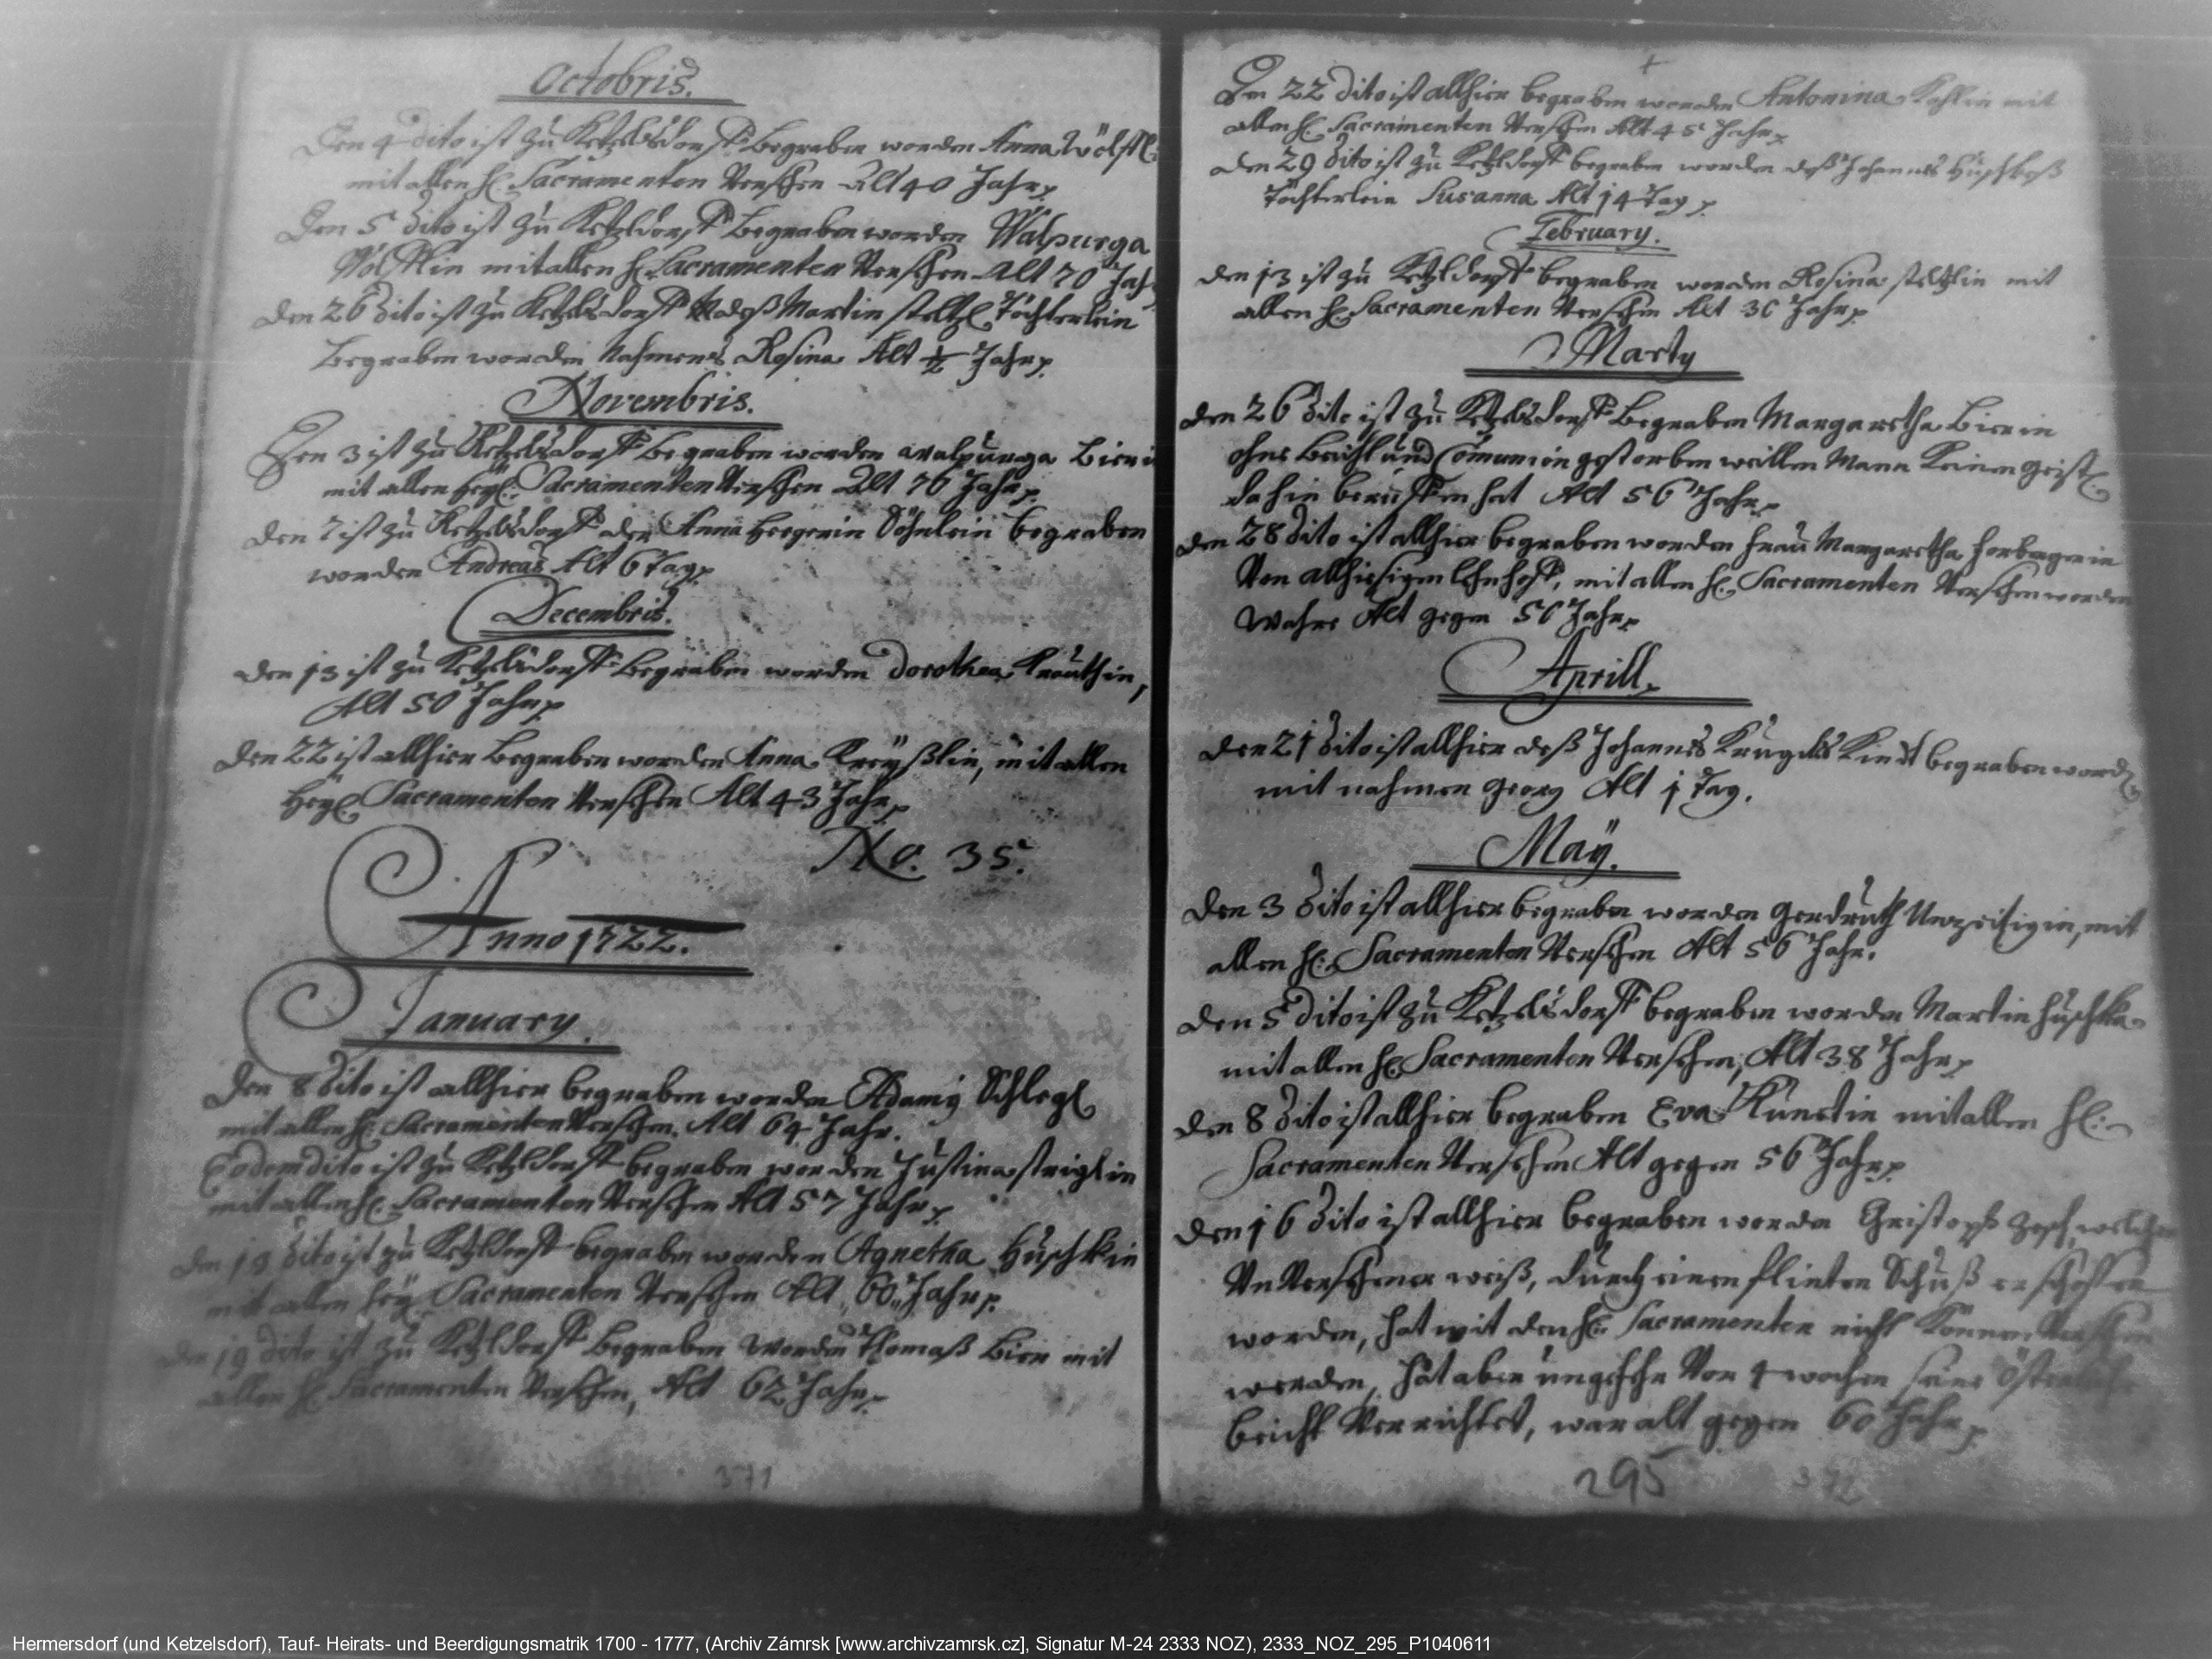 Octobris.
Den 4 dito ist zu Ketzelsdorff Begraben worden Anna
mit allen h. Sacramenten Versehen Alt 40 Jahr
Den 5 dito ist zu Ketzldorff Begraben worden Walpurga
Wölfflin mit allen h. Sacramenten Versehen Alt 70 Jah
Den 26 dito ist zu Ketzelsdorff deß Martin steltzl Töchterlein
Begraben worden Nahmens Rosina Alt ½ Jahr
Novembris.
Den 3 ist zu Ketzelsdorff Begraben worden walpurga Bieri
mit allen heyl: Sacramenten Versehen Alt 76 Jahr
Den 7 ist zu Ketzelsdorff der Anna Heegerin Söhnlein begraben
worden Andreas Alt 6 Tag
Decembris.
Den 13 ist zu Ketzelsdorff Begraben worden Dorothea Krauthin,
Alt 50 Jahr
Den 22 ist allhier Begraben worden Anna Kreyßlin, mit allen
Heyl. Sacramenten Versehen Alt 43 Jahr
No. 35.
Anno 1722.
January.
Den 8 dito ist allhier begraben worden Adamy Schlegl
mit allen h. Sacramenten Versehen. Alt 64 Jahr.
Eodem dito ist zu Ketzldorff begraben worden Justina striglin
mit allen h. Sacramenten Versehen Alt 57 Jahr
Den 19 dito ist zu Ketzldorff begraben worden Agnetha Huschkin
mit allen hey. Sacramenten Versehen Alt 60 Jahr
Den 19 dito ist zu Ketzldorff Begraben worden Thomaß Bier mit
allen h. Sacramenten Versehen, Alt 62 Jahr
371
Den 22 dito ist allhier begraben worden Antonina Kahlin mit
allen h. Sacramenten Versehen Alt 45 Jahr
Den 29 dito ist zu Ketzldorff begraben worden deß Johannes
Töchterlein Susanna Alt 14 Tag
February.
Den 13 ist zu Ketzldorff begraben worden Rosina steltzlin mit
allen h. Sacramenten Versehen Alt 36 Jahr
Marty
Den 26 dito ist zu Ketzelsdorff Begraben Margaretha Bierin
ohne Beicht und Comunion gestorben weillen Mann Keinen geistl
dahin beruffen hat Alt 56 Jahr
Den 28 dito ist allhier begraben worden frau Margaretha forbergerin
Von allhiesigen lehnhoff, mit allen h. Sacramenten Versehen worden
Wahre Alt gegen 50 Jahr
Aprill.
Den 21 dito ist allhier deß Johannes Krugelß Kindt begraben word
mit nahmen georg Alt 1 Tag.
Maÿ.
Den 3 dito ist allhier begraben worden Gerdruth Unzeitigin, mit
allen h: Sacramenten Versehen Alt 56 Jahr.
Den 5 dito ist zu Ketzelsdorff begraben worden Martin Huschka
mit allen h. Sacramenten Versehen, Alt 38 Jahr
Den 8 dito ist allhier begraben Eva mit allen hl:
Sacramenten Versehen Alt gegen 56 Jahr
Den 16 dito ist allhier begraben worden Christoph welcher
Un Versehener weiß, durch einen flinten Schuß erschossen
worden, hat mit den h. Sacramenten nicht Können Versehen
werden, hat aber ungefehr Vor 4 wochen seine
beicht Verrichtet, war alt gegen 60 Jahr
295
372
Hermersdorf (und Ketzelsdorf), Tauf- Heirats- und Beerdigungsmatrik 1700 - 1777, (Archiv Zámrsk [www.archivzamrsk.cz], Signatur M-24 2333 NOZ), 2333_NOZ_295_P1040611